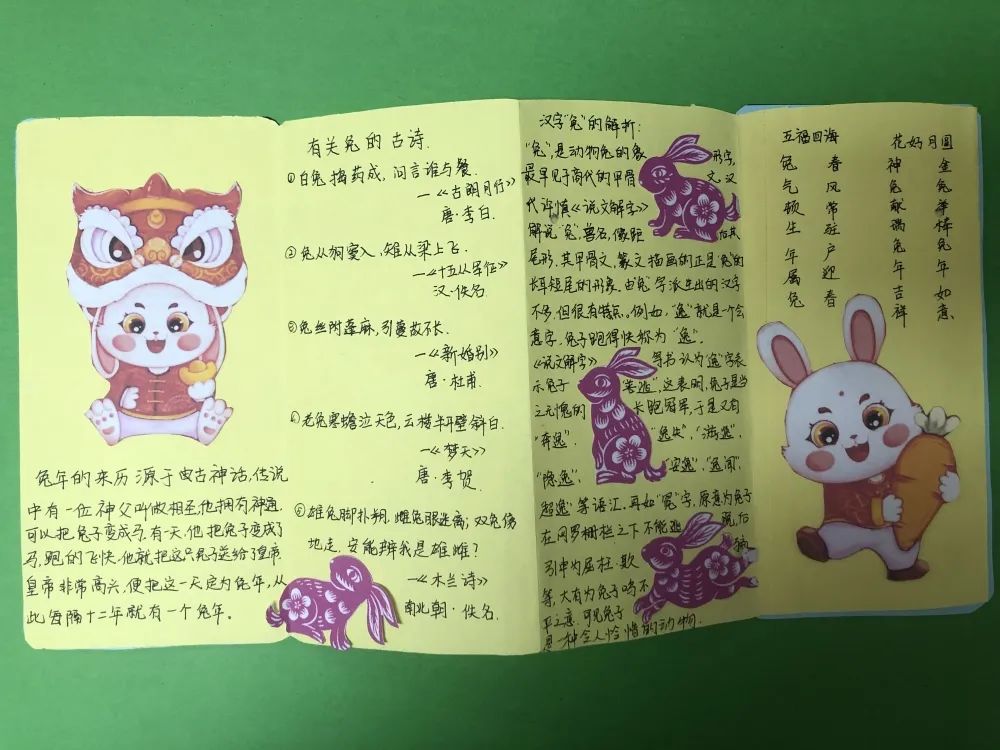 兔年的来历源于由古神话,传说
中有一位神父叫做相至,他拥有神通,
可以把兔子变成马,有一天,他把兔子变成了
马,跑的飞快,他就把这只兔子送给了皇帝
皇帝非常高兴,便把这一天定为兔年,从
此每隔十二年就有一个兔年。
有关兔的古诗.
①白兔捣药成,问言谁与餐.
—《古朗月行》
唐·李白.
②兔从狗窦入,雉从梁上飞.
—《十五从军征》
汉·佚名
③兔丝附蓬麻,引蔓故不长.
—《新婚别》
唐·杜甫.
④老兔寒蟾泣天色,云楼半开壁斜白.
—《梦天》
唐·李贺.
⑤雄兔脚扑朔,雌兔眼迷离;双兔傍
地走,安能辨我是雄雌?
—《木兰诗》
南北朝·佚名.
汉字"兔"的解析:
"兔",是动物兔的象形字,
最早见于商代的甲骨文,汉
代许慎《说文解字》
解说"兔"兽名,像踞 后其
尾形.其甲骨文,篆文描画的正是"兔"的
长耳短尾的形象.由"兔"字派生出的汉字
不多,但很有特点。例如,"逸"就是一个会
意字,兔子跑得快称为"逸"。
《说文解字》等书认为"逸"字表
示兔子"善逃",这表明,兔子是当
之无愧的长跑冠军,于是又有
"奔逸","逸失","游逸",
"隐逸","安逸","逸闻",
超逸"等语汇.再如"冤"字,原意为兔子
在网罗栅栏之下不能逃 后
引申为屈枉.欺
等,大有为兔子鸣不
平之意.可见兔子
是一种令人怜惜的动物.
五福四海
兔气顿生年属兔
春风常驻户迎春
花好月圆
神兔献瑞兔年吉祥
金兔奉棒兔年如意